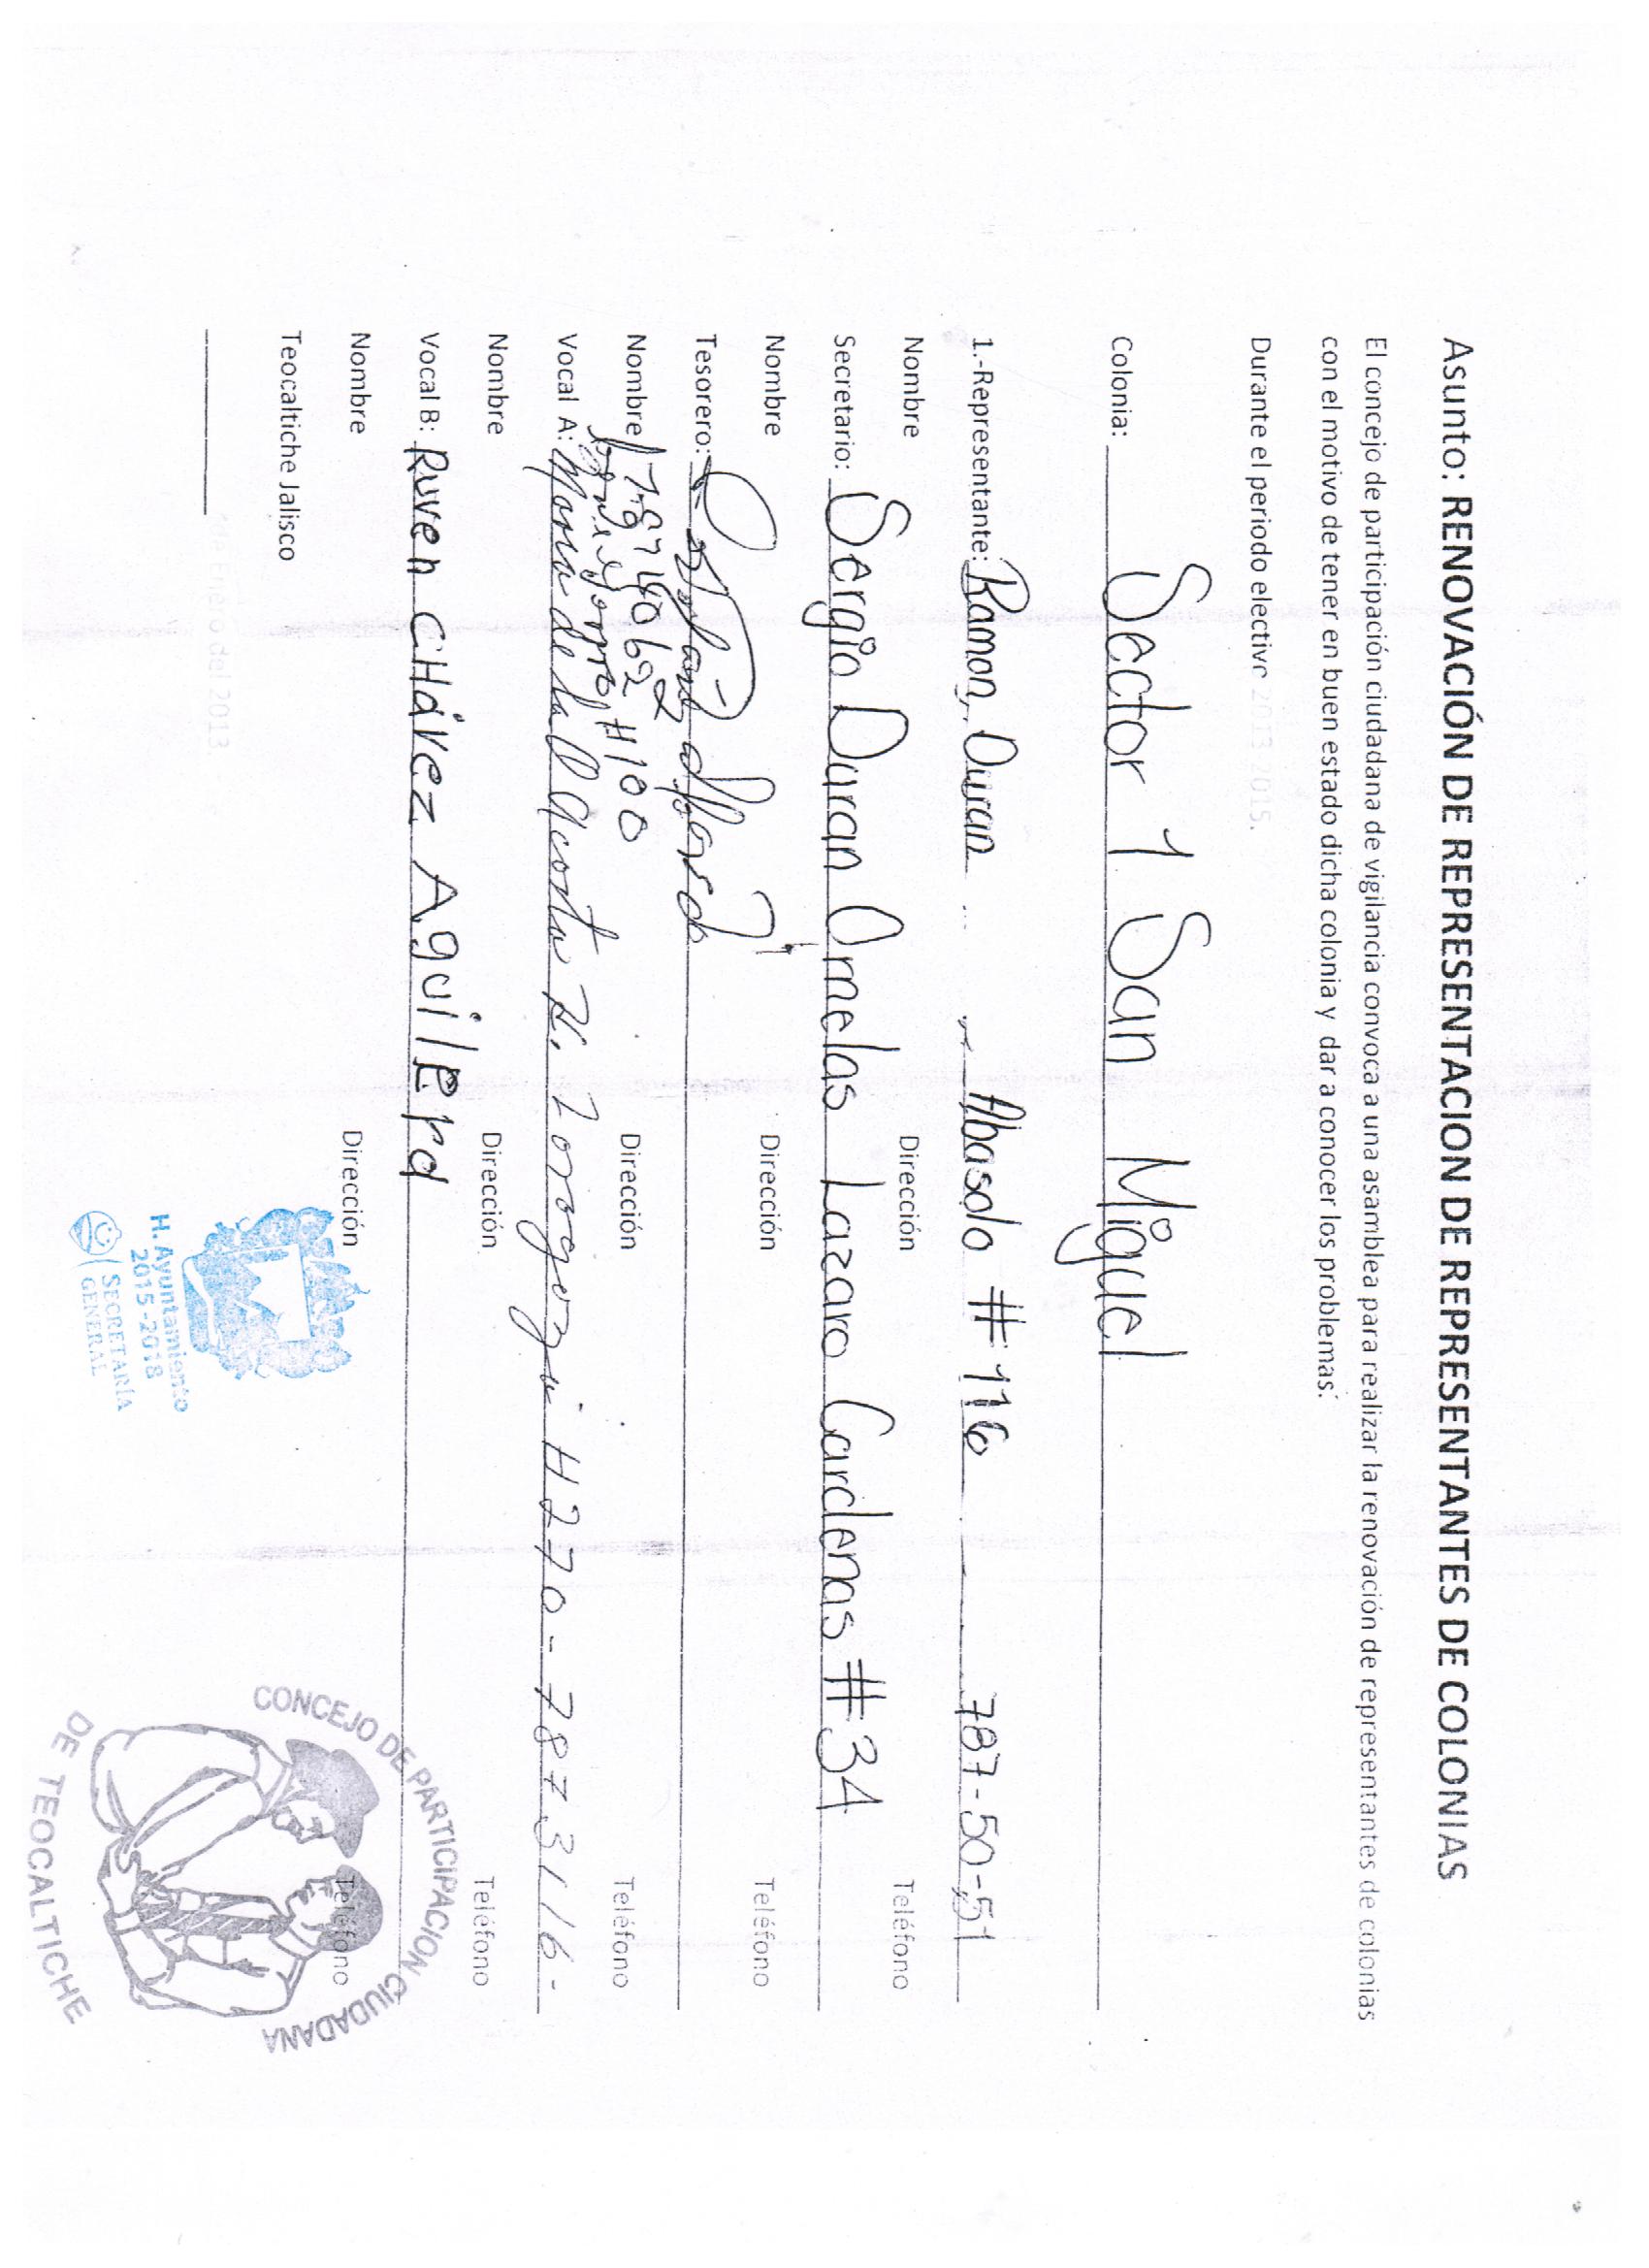 Asunto: RENOVACIÓN DE REPRESENTACION DE REPRESENTANTES DE COLONIAS
El concejo de participación ciudadana de vigilancia convoca a una asamblea para realizar la renovación de representantes de colonias
con el motivo de tener en buen estado dicha colonia y dar a conocer los problemas.
Durante el periodo elective 2013 2015.
Colonia: Sector 1 San Miguel
1.-Representante: Ramon, Duran Abasolo # 116 787-50-51
Nombre Dirección Teléfono
Secretario: Sergio Duran Ornelas Lazaro Cardenas #34
Nombre Dirección Teléfono
Tesorero:
Nombre Dirección Teléfono
Vocal A: Maria de H 270 - 787 3116-
Nombre Dirección Teléfono
Vocal B: Ruven CHávez AguilEra
Nombre Dirección Teléfono
Teocaltiche Jalisco
Enero del 2013.
H. Ayuntamiento
2015-2018
SECRETARÍA
GENERAL
CONCEJO DE PARTICIPACION CIUDADANA
DE TEOCALTICHE